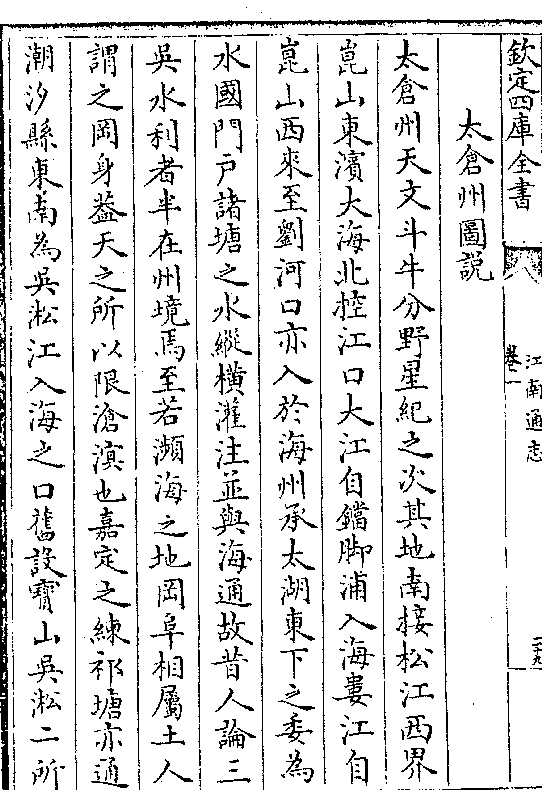 欽定四庫全書
江南通志
卷一
二十九
太倉州圖説
太倉州天文斗牛分野星紀之次其地南接松江西界
崑山東濱大海北控江口大江自鐺脚浦入海婁江自
崑山西來至劉河口亦入於海州承太湖東下之委為
水國門戸諸塘之水縱横灌注並與海通故昔人論三
吳水利者半在州境焉至若瀕海之地岡阜相屬土人
謂之岡身葢天之所以限滄溟也嘉定之練祁塘亦通
潮汐縣東南為吳淞江入海之口舊設寶山吳淞二所